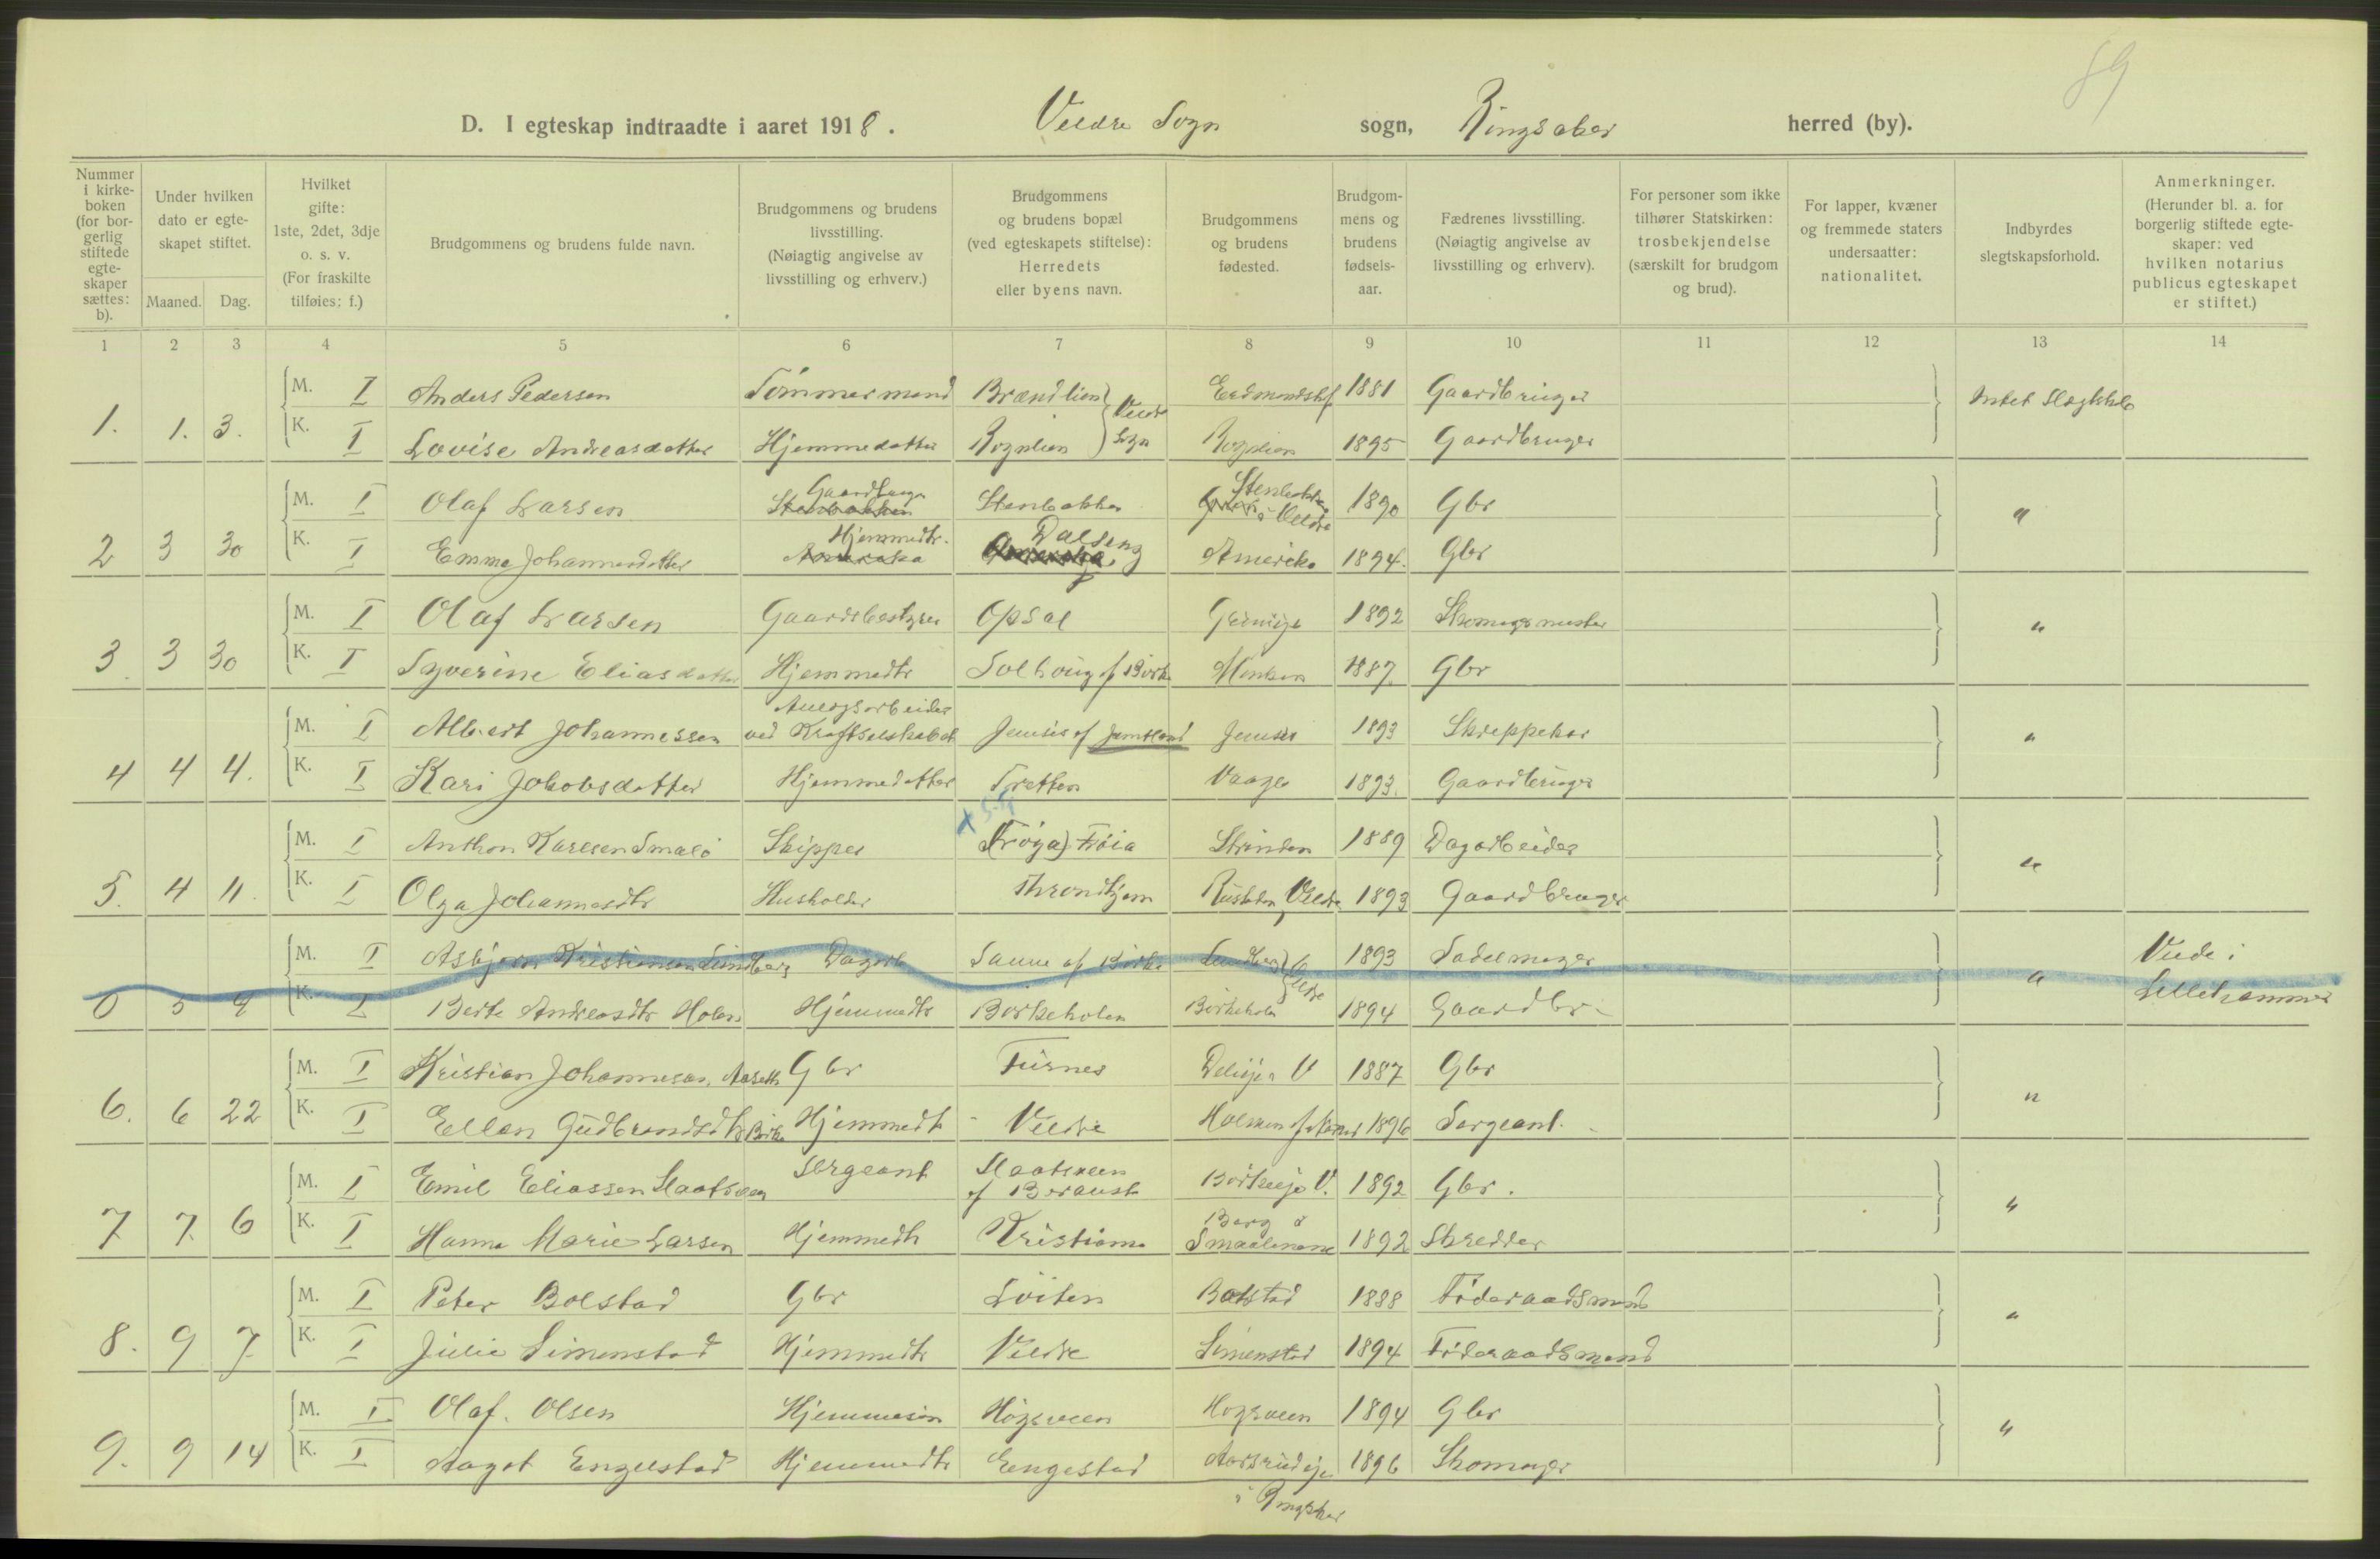 89
D. I egteskap indtraadte i aaret 1918. Veldre Sogn sogn, Ringsaker herred (by).
Nummer i kirke-boken (for bor-gerlig stiftede egte-skaper sættes: b).
Under hvilken dato er egte-skapet stiftet.
Maaned. Dag.
Hvilket gifte: 1ste, 2det, 3dje o. s. v. (For fraskilte tilføies: f.)
Brudgommens og brudens fulde navn.
Brudgommens og brudens livsstilling. (Nøiagtig angivelse av livsstilling og erhverv.)
Brudgommens og brudens bopæl (ved egteskapets stiftelse): Herredets eller byens navn.
Brudgommens og brudens fødested.
Brudgom-mens og brudens fødsels-aar.
Fædrenes livsstilling. (Nøiagtig angivelse av livsstilling og erhverv).
For personer som ikke tilhører Statskirken: trosbekjendelse (særskilt for brudgom og brud).
For lapper, kvæner og fremmede staters undersaatter: nationalitet.
Indbyrdes slegtskapsforhold.
Anmerkninger. (Herunder bl. a. for borgerlig stiftede egte-skaper: ved hvilken notarius publicus egteskapet er stiftet.)
1 2 3 4 5 6 7 8 9 10 11 12 13 14
M. I Anders Pedersen Tømmermand Brændlien 1881 Gaardbruger Intet
1. 1. 3. Veldre Sogn
K. I Lovise Andreasdatter Hjemmedatter Rognlien Rognlien 1895 Gaardbruger
M. I Olaf Larsen Gaardbruger Stenbakken Stenbakken i Veldre 1890 Gbr "
2 3 30 K. I Emma Johannesdatter Hjemmedtr. Dalseng Amerika 1894. Gbr
M. I Olaf Larsen Gaardsbestyrer Opsal 1892 Skomagermester "
3. 3 30 K. I Syverine Eliasdatter Hjemmedtr Solhoug af Birke 1887 Gbr
M. I Albert Johannessen Anlægsarbeider ved Kraftselskabet Jemsis af Jemtland Jemsis 1893 Skreppekar "
4 4 4. K. I Kari Jakobsdatter Hjemmedatter Tretten Vaage 1893. Gaardbruger
M. I Anthon Karlsen Smalø Skipper (Frøya) Frøia Strinden 1889 Dagarbeider "
5. 4 11. K. I Olga Johannesdtr Husholder Throndhjem Veldre 1893 Gaardbruger
M. I Asbjørn Kristiansen Lundberg Dagarb Saune af Birke Lundberg Veldre 1893 Sadelmager " Viede i Lillehammer
0 5 9 K. I Berte Andreasdtr Holen Hjemmedtr Birkeholen Birkeholen 1894 Gaardbr.
M. I Kristian Johannesen Aaseth Gbr Furnes V 1887 Gbr "
6. 6 22 K. I Ellen Gudbrandsdtr Birke Hjemmedt Veldre 1896 Sergeant.
M. I Emil Eliassen Slaatsveen Sergeant Slaatsveen af Beraust V. 1892 Gbr. "
7. 7. 6 K. I Hanna Marie Larsen Hjemmedtr Kristiania Berg i Smaalenene 1892 Skredder
M. I Peter Bolstad Gbr Løiten Bolstad 1888 Føderaadsmand "
8. 9 7 K. I Julie Simenstad Hjemmedtr Veldre Simenstad 1894 Føderaadsmand
M. I. Olaf. Olsen Hjemmesøn Høgsveen Høgsveen 1894 Gbr "
9. 9 14 K. I Aagot Engelstad Hjemmedtr Engestad 1896 Skomager
i Ringsaker